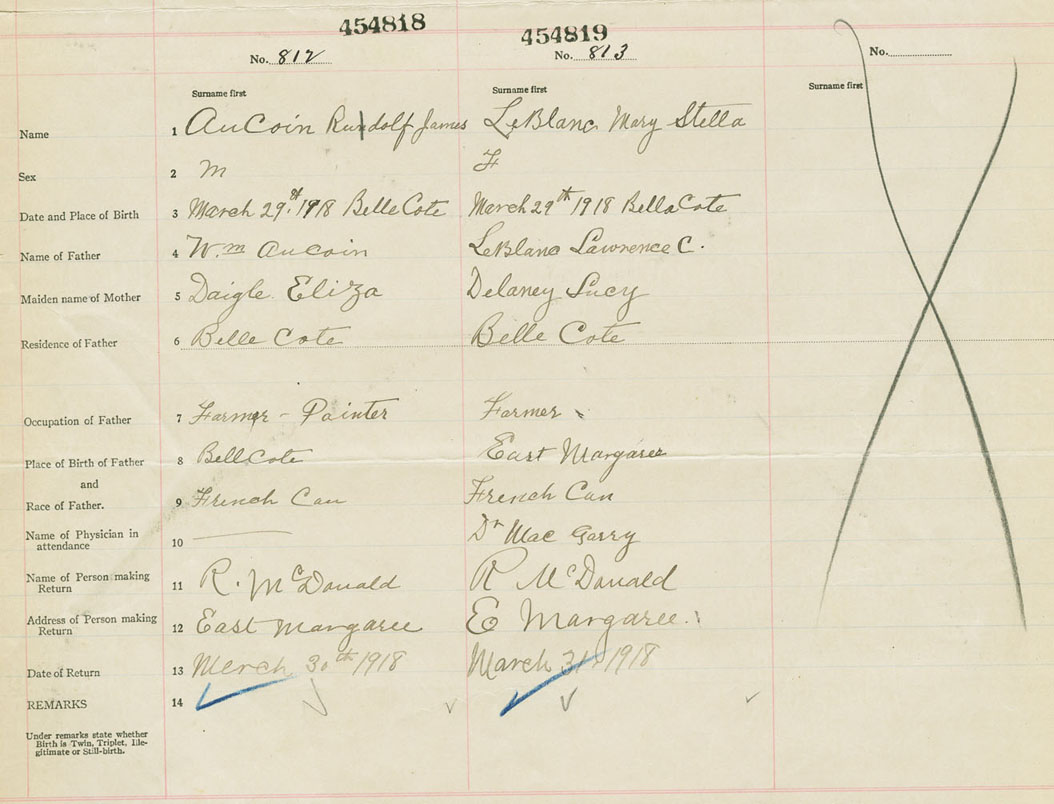 454818
454819
No. 812
No. 813
No.
Surname first
Surname first
Surname first
Name 1 AuCoin Rundolf James LeBlanc Mary Stella
Sex 2 M F
Date and Place of Birth 3 March 29th 1918 Belle Cote March 29th 1918 Belle Cote
Name of Father 4 Wm AuCoin LeBlanc Lawrence C.
Maiden name of Mother 5 Daigle Eliza Delaney Lucy
Residence of Father 6 Belle Cote Belle Cote
Occupation of Father 7 Farmer - Painter Farmer
Place of Birth of Father 8 Bell Cote East Margaree
and
Race of Father. 9 French Can French Can
Name of Physician in
attendance 10 Dr Mac Garry
Name of Person making
Return 11 R. McDonald R McDonald
Address of Person making
Return 12 East Margaree E Margaree
Date of Return 13 March 30th 1918 March 31 1918
REMARKS 14
Under remarks state whether
Birth is Twin, Triplet, Ille-
gitimate or Still-birth.